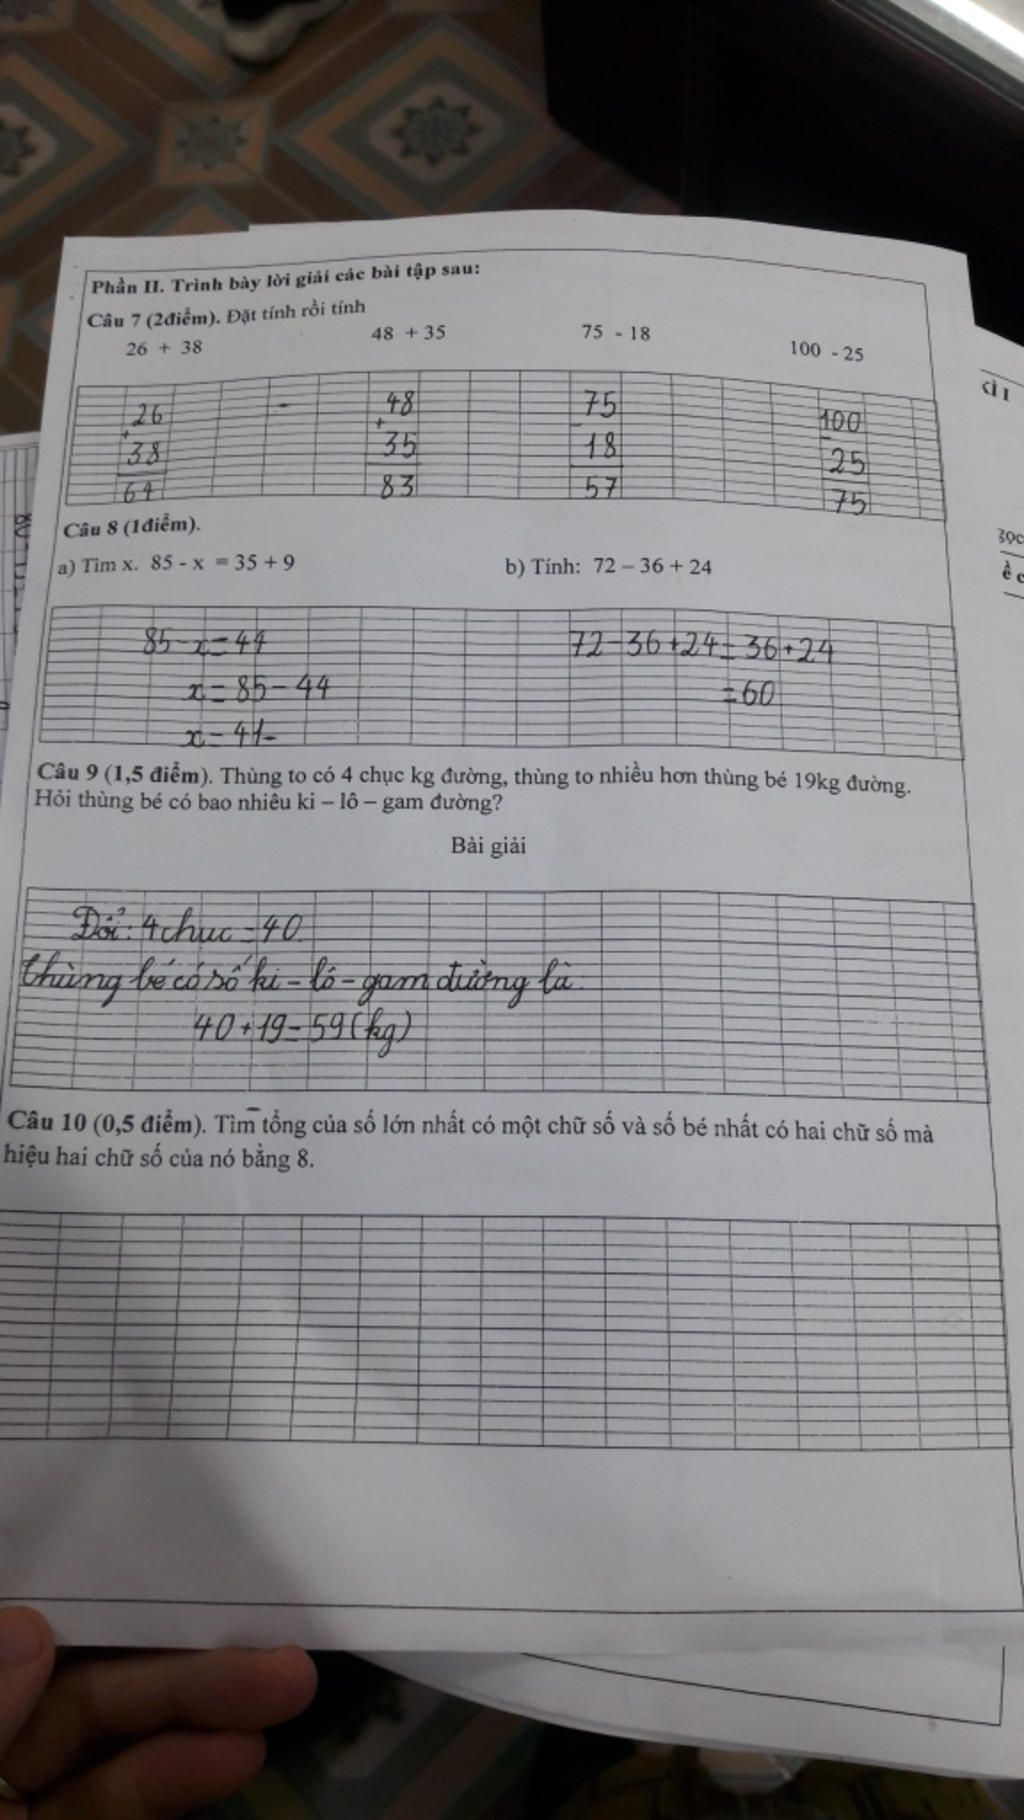 Phần II. Trình bày lời giải các bài tập sau:
Câu 7 (2điểm). Đặt tính rồi tính
26 + 38 48 + 35 75 - 18 100 - 25
26 48 75 100
+ + - -
38 35 18 25
64 83 57 75
Câu 8 (1điểm).
a) Tìm x. 85 - x = 35 + 9 b) Tính: 72 – 36 + 24
85 - x = 44 72 - 36 + 24 = 36 + 24
x = 85 - 44 = 60
x = 41
Câu 9 (1,5 điểm). Thùng to có 4 chục kg đường, thùng to nhiều hơn thùng bé 19kg đường.
Hỏi thùng bé có bao nhiêu ki – lô – gam đường?
Bài giải
Đổi: 4 chục = 40.
thùng bé có số ki - lô - gam đường là.
40 + 19 = 59 (kg)
Câu 10 (0,5 điểm). Tìm tổng của số lớn nhất có một chữ số và số bé nhất có hai chữ số mà
hiệu hai chữ số của nó bằng 8.